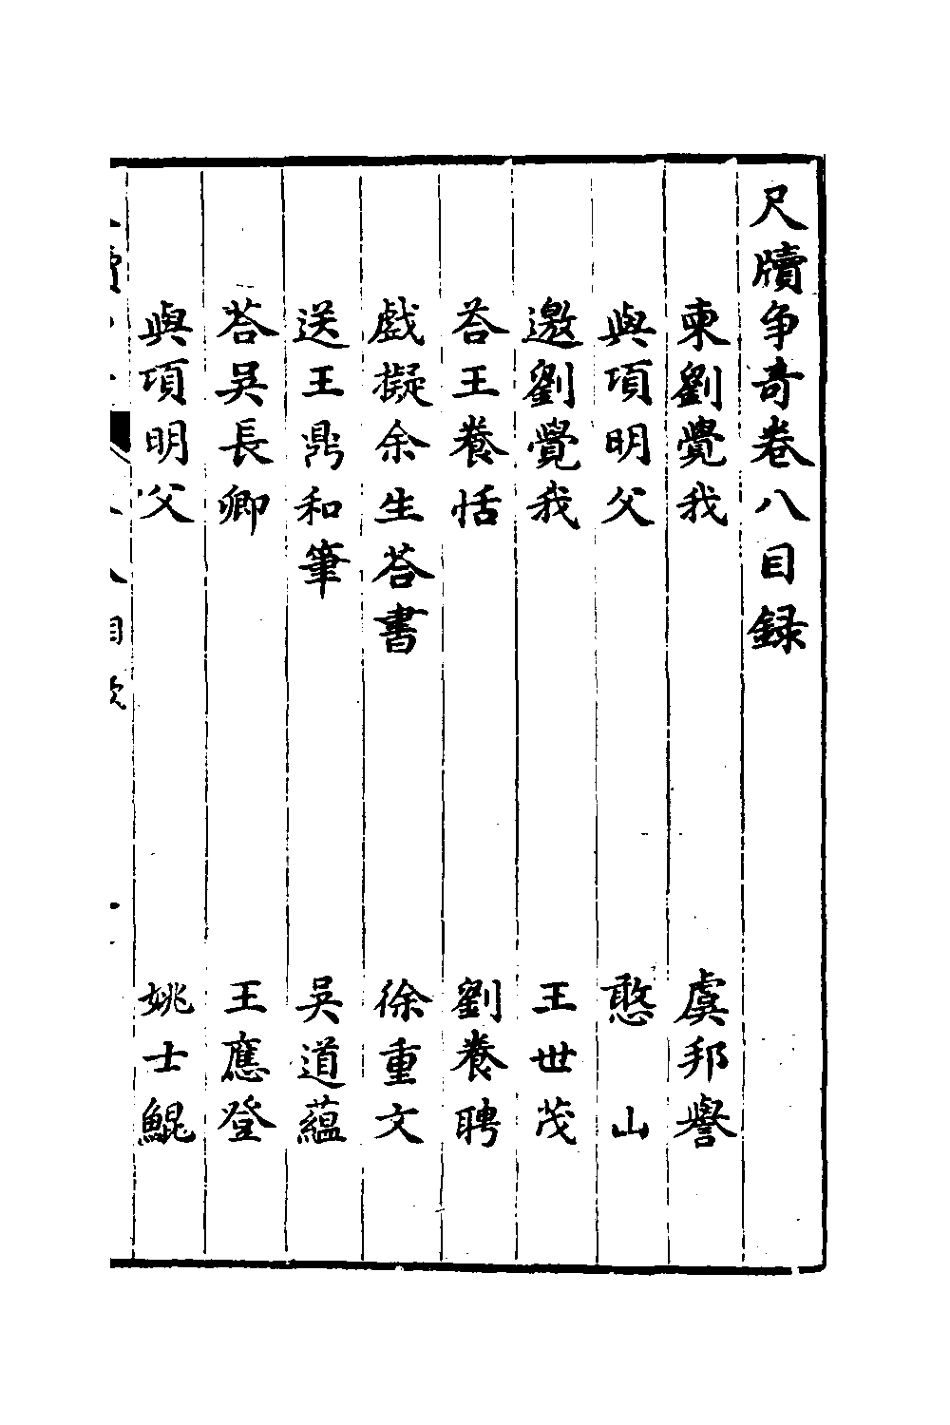 尺牘争奇卷八目録
柬劉覺我 虞邦譽
與項明父 憨山
邀劉覺我 王世茂
荅王養恬 劉養聘
戲擬余生荅書 徐重文
送王鼎和筆 吳道蘊
荅吳長卿 王應登
與項明父 姚士鯤